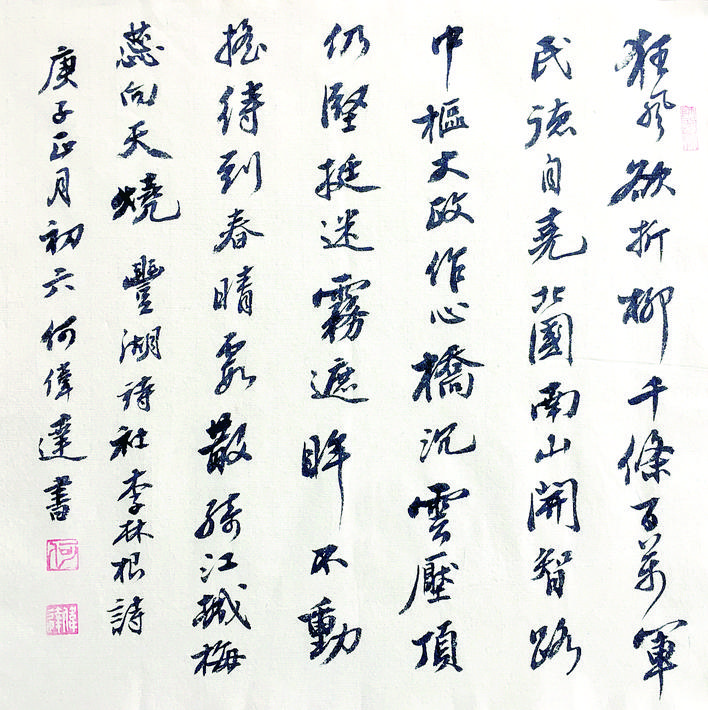 狂風欲折柳千條百萬軍
民德自堯北國南山開智路
中樞大政作心橋沉雲壓頂
仍堅挺迷霧遮眸不動
搖待到春晴霞散綺江城梅
蕊向天燒 豐湖詩社李林根詩
庚子正月初六何偉達書
何